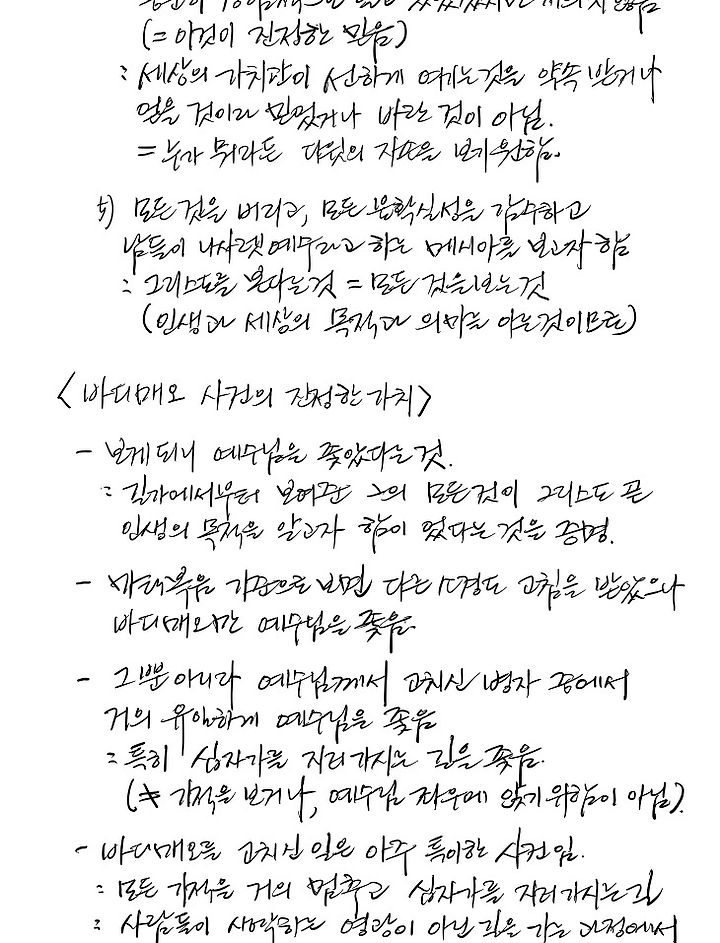 (= 이것이 진정한 믿음)
: 세상의 가치관이 선하게 여기는 것을 약속 받거나
얻을 것이라 믿었거나 바란 것이 아님.
= 누가 뭐라든 다윗의 자손을 보기 원함.
5) 모든 것을 버리고, 모든 불확실성을 감수하고
남들이 나사렛 예수라고 하는 메시아를 보고자 함
: 그리스도를 본다는 것 = 모든 것을 보는 것
(인생과 세상의 목적과 의미를 아는 것이므로)
<바디매오 사건의 진정한 가치>
- 보게 되니 예수님을 좇았다는 것.
: 길가에서부터 보여준 그의 모든 것이 그리스도 곧
인생의 목적을 알고자 함이 었다는 것을 증명.
- 마태복음 기준으로 보면 다른 소경도 고침을 받았으나
바디매오만 예수님을 좇음.
- 그뿐 아니라 예수님께서 고치신 병자 중에서
거의 유일하게 예수님을 좇음
: 특히 십자가를 지러 가시는 길을 좇음.
(≠ 기적을 보거나, 예수님 좌우에 앉기 위함이 아님).
- 바디매오를 고치신 일은 아주 특이한 사건임.
: 모든 기적을 거의 멈추고 십자가를 지러 가시는 길
: 사람들이 생각하는 영광이 아닌 길을 가는 과정에서